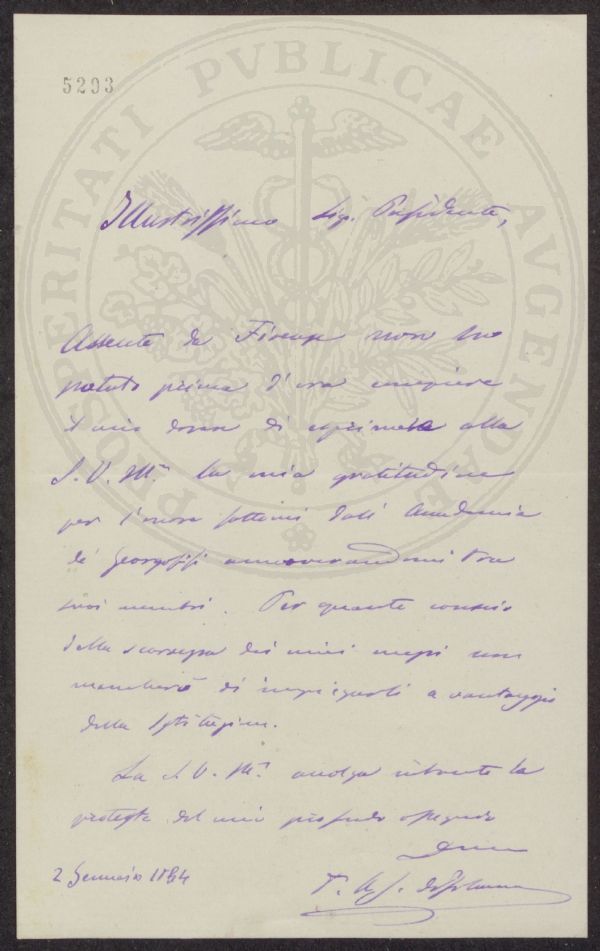 5293
PROSPERITATI PVBLICAE AVGENDAE
Illustrissimo Sig. Presidente,
Assente da Firenze non ho
potuto prima d'ora compiere
il mio dovere di esprimere alla
S. V. Ill.ma la mia gratitudine
per l'onore fattomi dall'Accademia
de' Georgofili annoverandomi tra
suoi membri. Per quanto conscio
della scarsezza dei miei mezzi non
mancherò di impiegarli a vantaggio
della Istituzione.
La S. V. Ill.ma accolga intanto la
protesta del mio profondo ossequio
2 Gennaio 1884